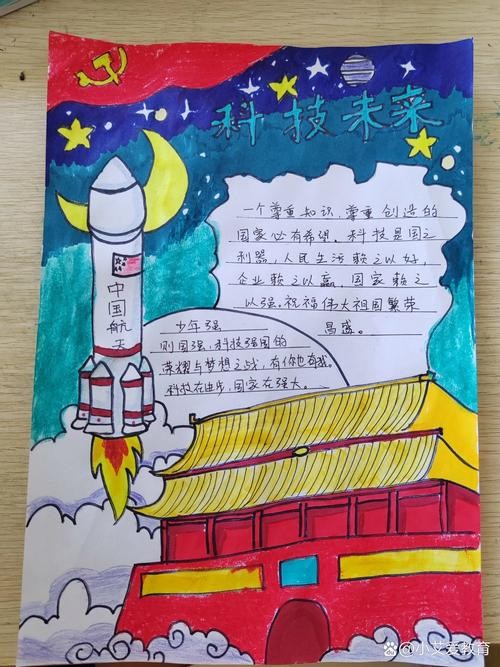 科技未来
一个尊重知识、尊重创造的
国家必有希望、科技是国之
利器，人民生活赖之以好，
企业赖之以赢，国家赖之
以强。祝福伟大祖国繁荣
昌盛。
少年强
则国强，科技强国的
荣耀与梦想之战，有你也有我。
科技在进步，国家在强大。
中国航天
小艾爱教育